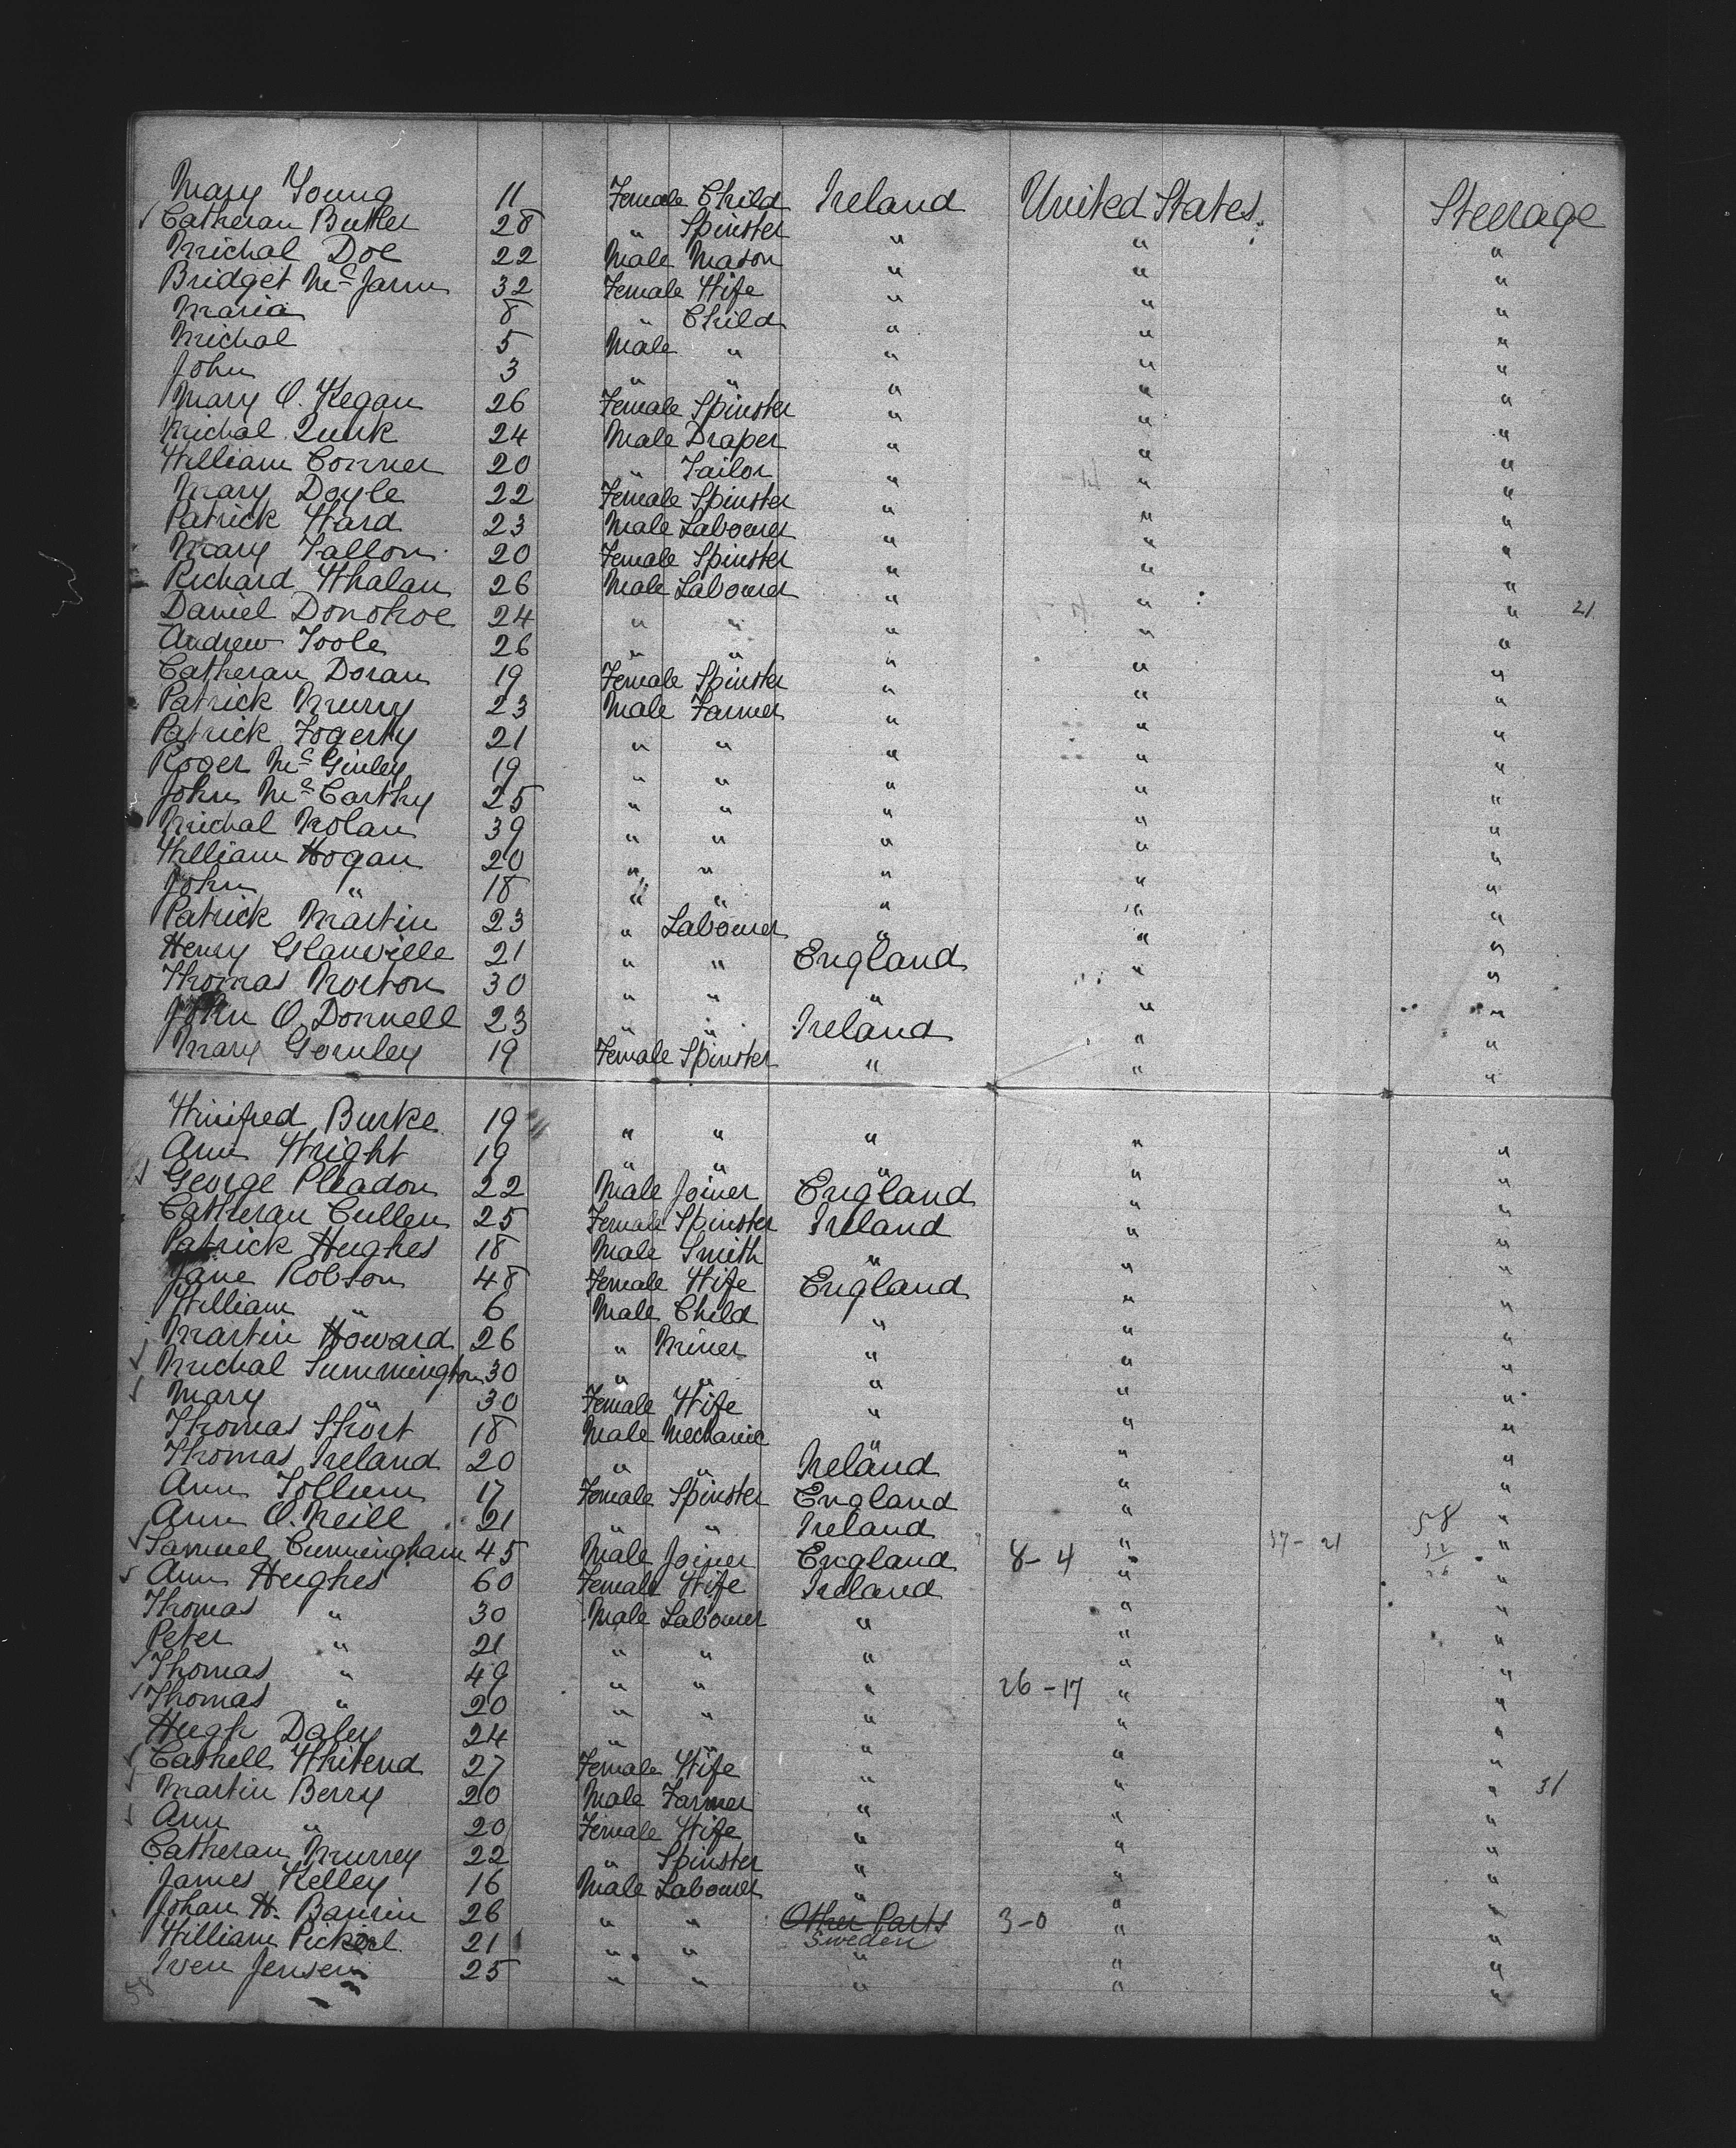 Mary Young 11 Female Child Ireland United States Steerage
Catheran Butler 28 " Spinster " " "
Michal Doe 22 Male Mason " " "
Bridget Mc Jann 32 Female Wife " " "
Maria 8 " Child " " "
Michal 5 Male " " " "
John 3 " " " " "
Mary O. Kegan 26 Female Spinster " " "
Michal Quirk 24 Male Draper " " "
William Conner 20 " Tailor " " "
Mary Doyle 22 Female Spinster " " "
Patrick Ward 23 Male Labourer " " "
Mary Fallon 20 Female Spinster " " "
Richard Whalan 26 Male Labourer " " "
Daniel Donohoe 24 " " " " " 21
Andrew Toole 26 " " " " "
Catheran Doran 19 Female Spinster " " "
Patrick Murry 23 Male Farmer " " "
Patrick Fogerty 21 " " " " "
Roger Mc Ginley 19 " " " " "
John Mc Carthy 25 " " " " "
Michal Nolan 39 " " " " "
William Hogan 20 " " " " "
John " 18 " " " " "
Patrick Martin 23 " Labourer " " "
Henry Glanville 21 " " England " "
Thomas Norton 30 " " " " "
John O. Donnell 23 " " Ireland " "
Mary Gornley 19 Female Spinster " " "
Winifred Burke 19 " " " " "
Ann Wright 19 " " " " "
George Pleadon 22 Male Joiner England " "
Catheran Cullen 25 Female Spinster Ireland " "
Patrick Hughes 18 Male Smith " " "
Jane Robson 48 Female Wife England " "
William " 6 Male Child " " "
Martin Howard 26 " Miner " " "
Michal Summington 30 " " " " "
Mary " 30 Female Wife " " "
Thomas Short 18 Male Mechanic " " "
Thomas Ireland 20 " " Ireland " "
Ann Tollum 17 Female Spinster England " "
Ann O. Neill 21 " " Ireland " 58 "
Samuel Cunningham 45 Male Joiner England 8-4 " 37-21 "
Ann Hughes 60 Female Wife Ireland " "
Thomas " 30 Male Labourer " " "
Peter " 21 " " " " "
Thomas " 49 " " " " "
Thomas " 20 " " " 26-17 " "
Hugh Daley 24 " " " " "
Cathell Whitend 27 Female Wife " " "
Martin Berry 20 Male Farmer " " " 31
Ann " 20 Female Wife " " "
Catheran Murrey 22 " Spinster " " "
James Kelley 16 Male Labourer " " "
Johan H. Banrin 26 " " Other Parts 3-0 " "
Sweden
William Pickerl 21 " " " " "
Iven Jensen 25 " " " " "
58